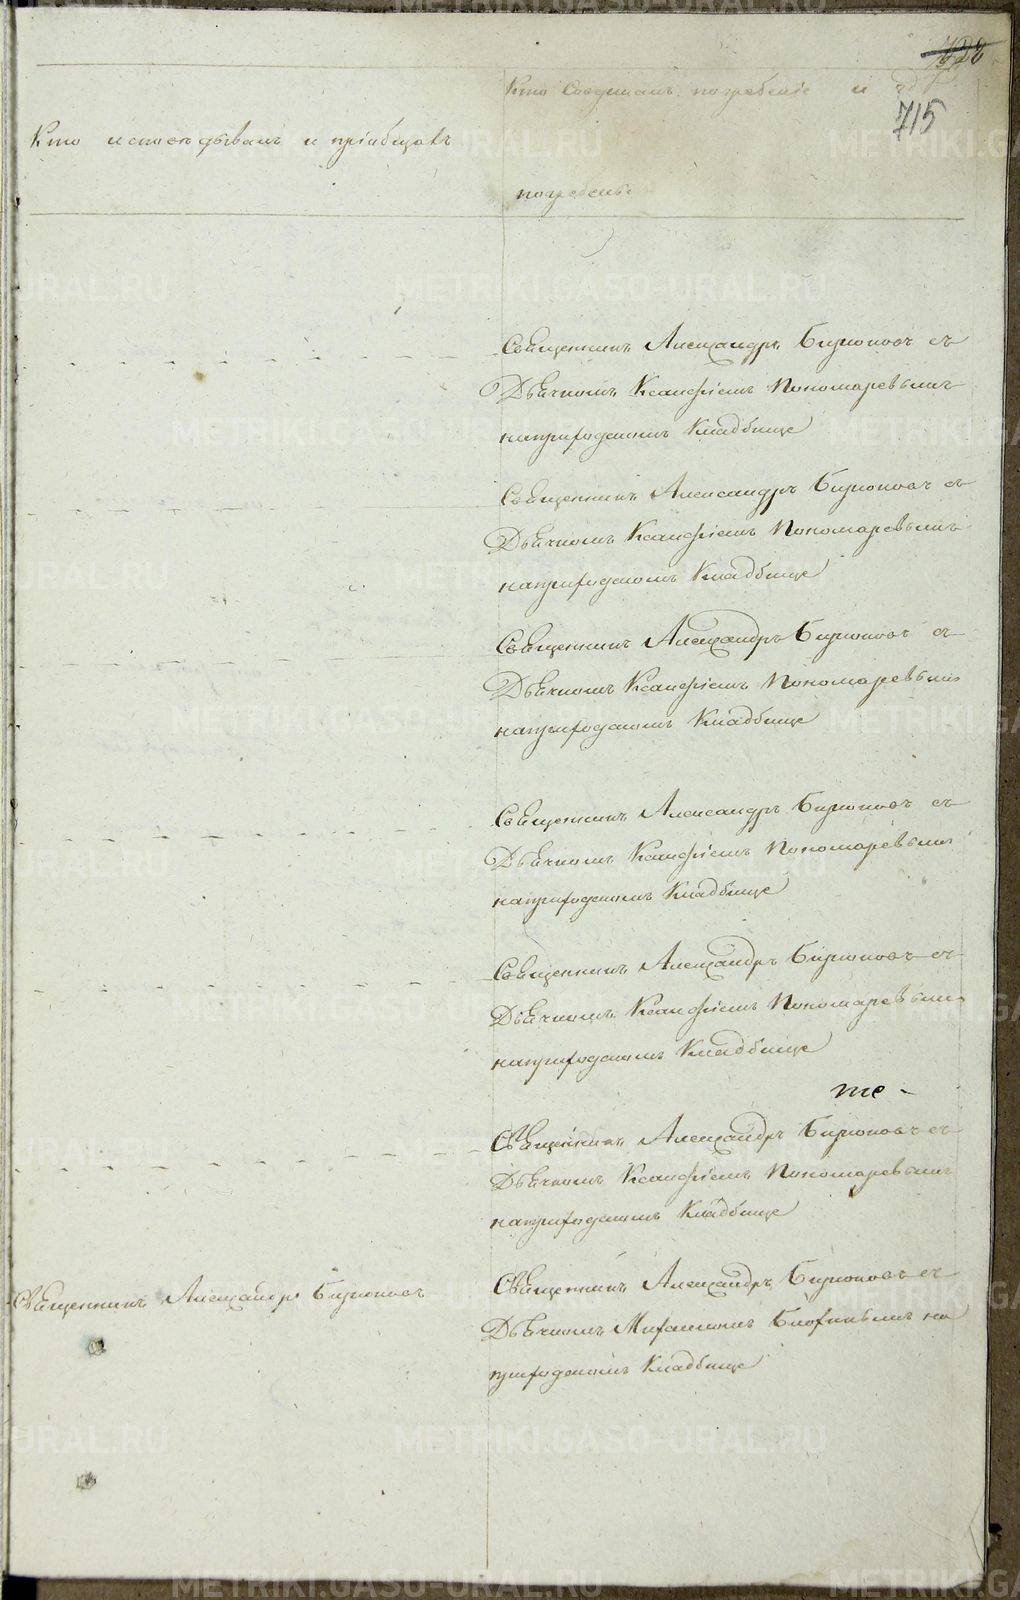 728
715
Кто исповѣдывалъ и пріобщалъ
Кто совершалъ погребеніе и гдѣ
погребены
Священникъ Александръ Бирюковъ съ
Дьячкомъ Ксанфіемъ Пономаревымъ
на приходскомъ Кладбище
Священникъ Александръ Бирюковъ съ
Дьячкомъ Ксанфіемъ Пономаревымъ
на приходскомъ Кладбище
Священникъ Александръ Бирюковъ съ
Дьячкомъ Ксанфіемъ Пономаревымъ
на приходскомъ Кладбище
Священникъ Александръ Бирюковъ съ
Дьячкомъ Ксанфіемъ Пономаревымъ
на приходскомъ Кладбище
Священникъ Александръ Бирюковъ съ
Дьячкомъ Ксанфіемъ Пономаревымъ
на приходскомъ Кладбище
те -
Священникъ Александръ Бирюковъ съ
Дьячкомъ Ксанфіемъ Пономаревымъ
на приходскомъ Кладбище
Священникъ Александръ Бирюковъ
Священникъ Александръ Бирюковъ съ
Дьячкомъ на
приходскомъ Кладбище
METRIKI.GASO-URAL.RU